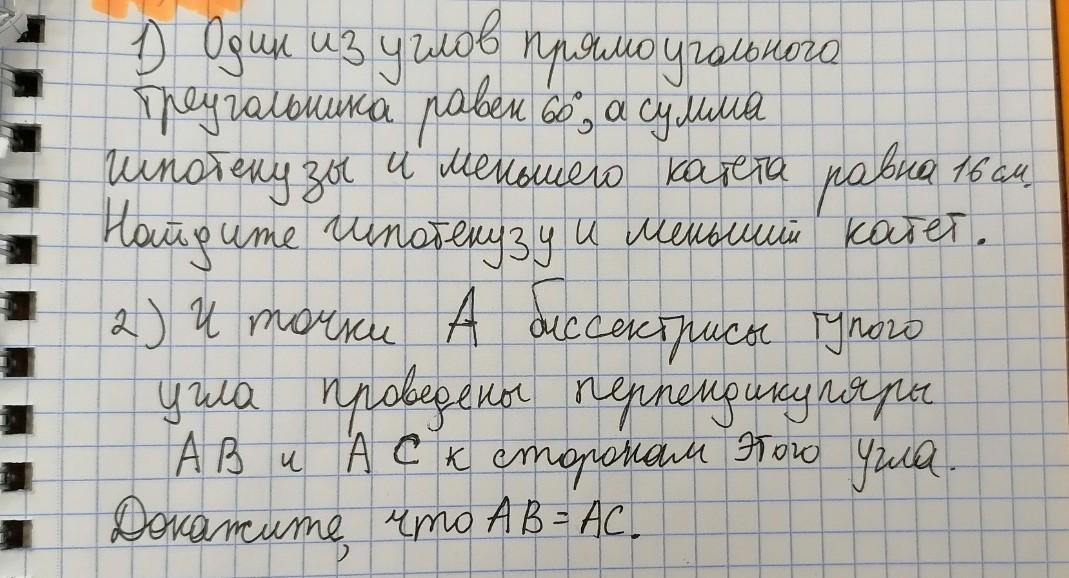 1) Один из углов прямоугольного
треугольника равен 60°, а сумма
гипотенузы и меньшего катета равна 16 см.
Найдите гипотенузу и меньший катет.
2) И точки А биссектрисы тупого
угла проведены перпендикуляры
АВ и АС к сторонам этого угла.
Докажите, что АВ = АС.